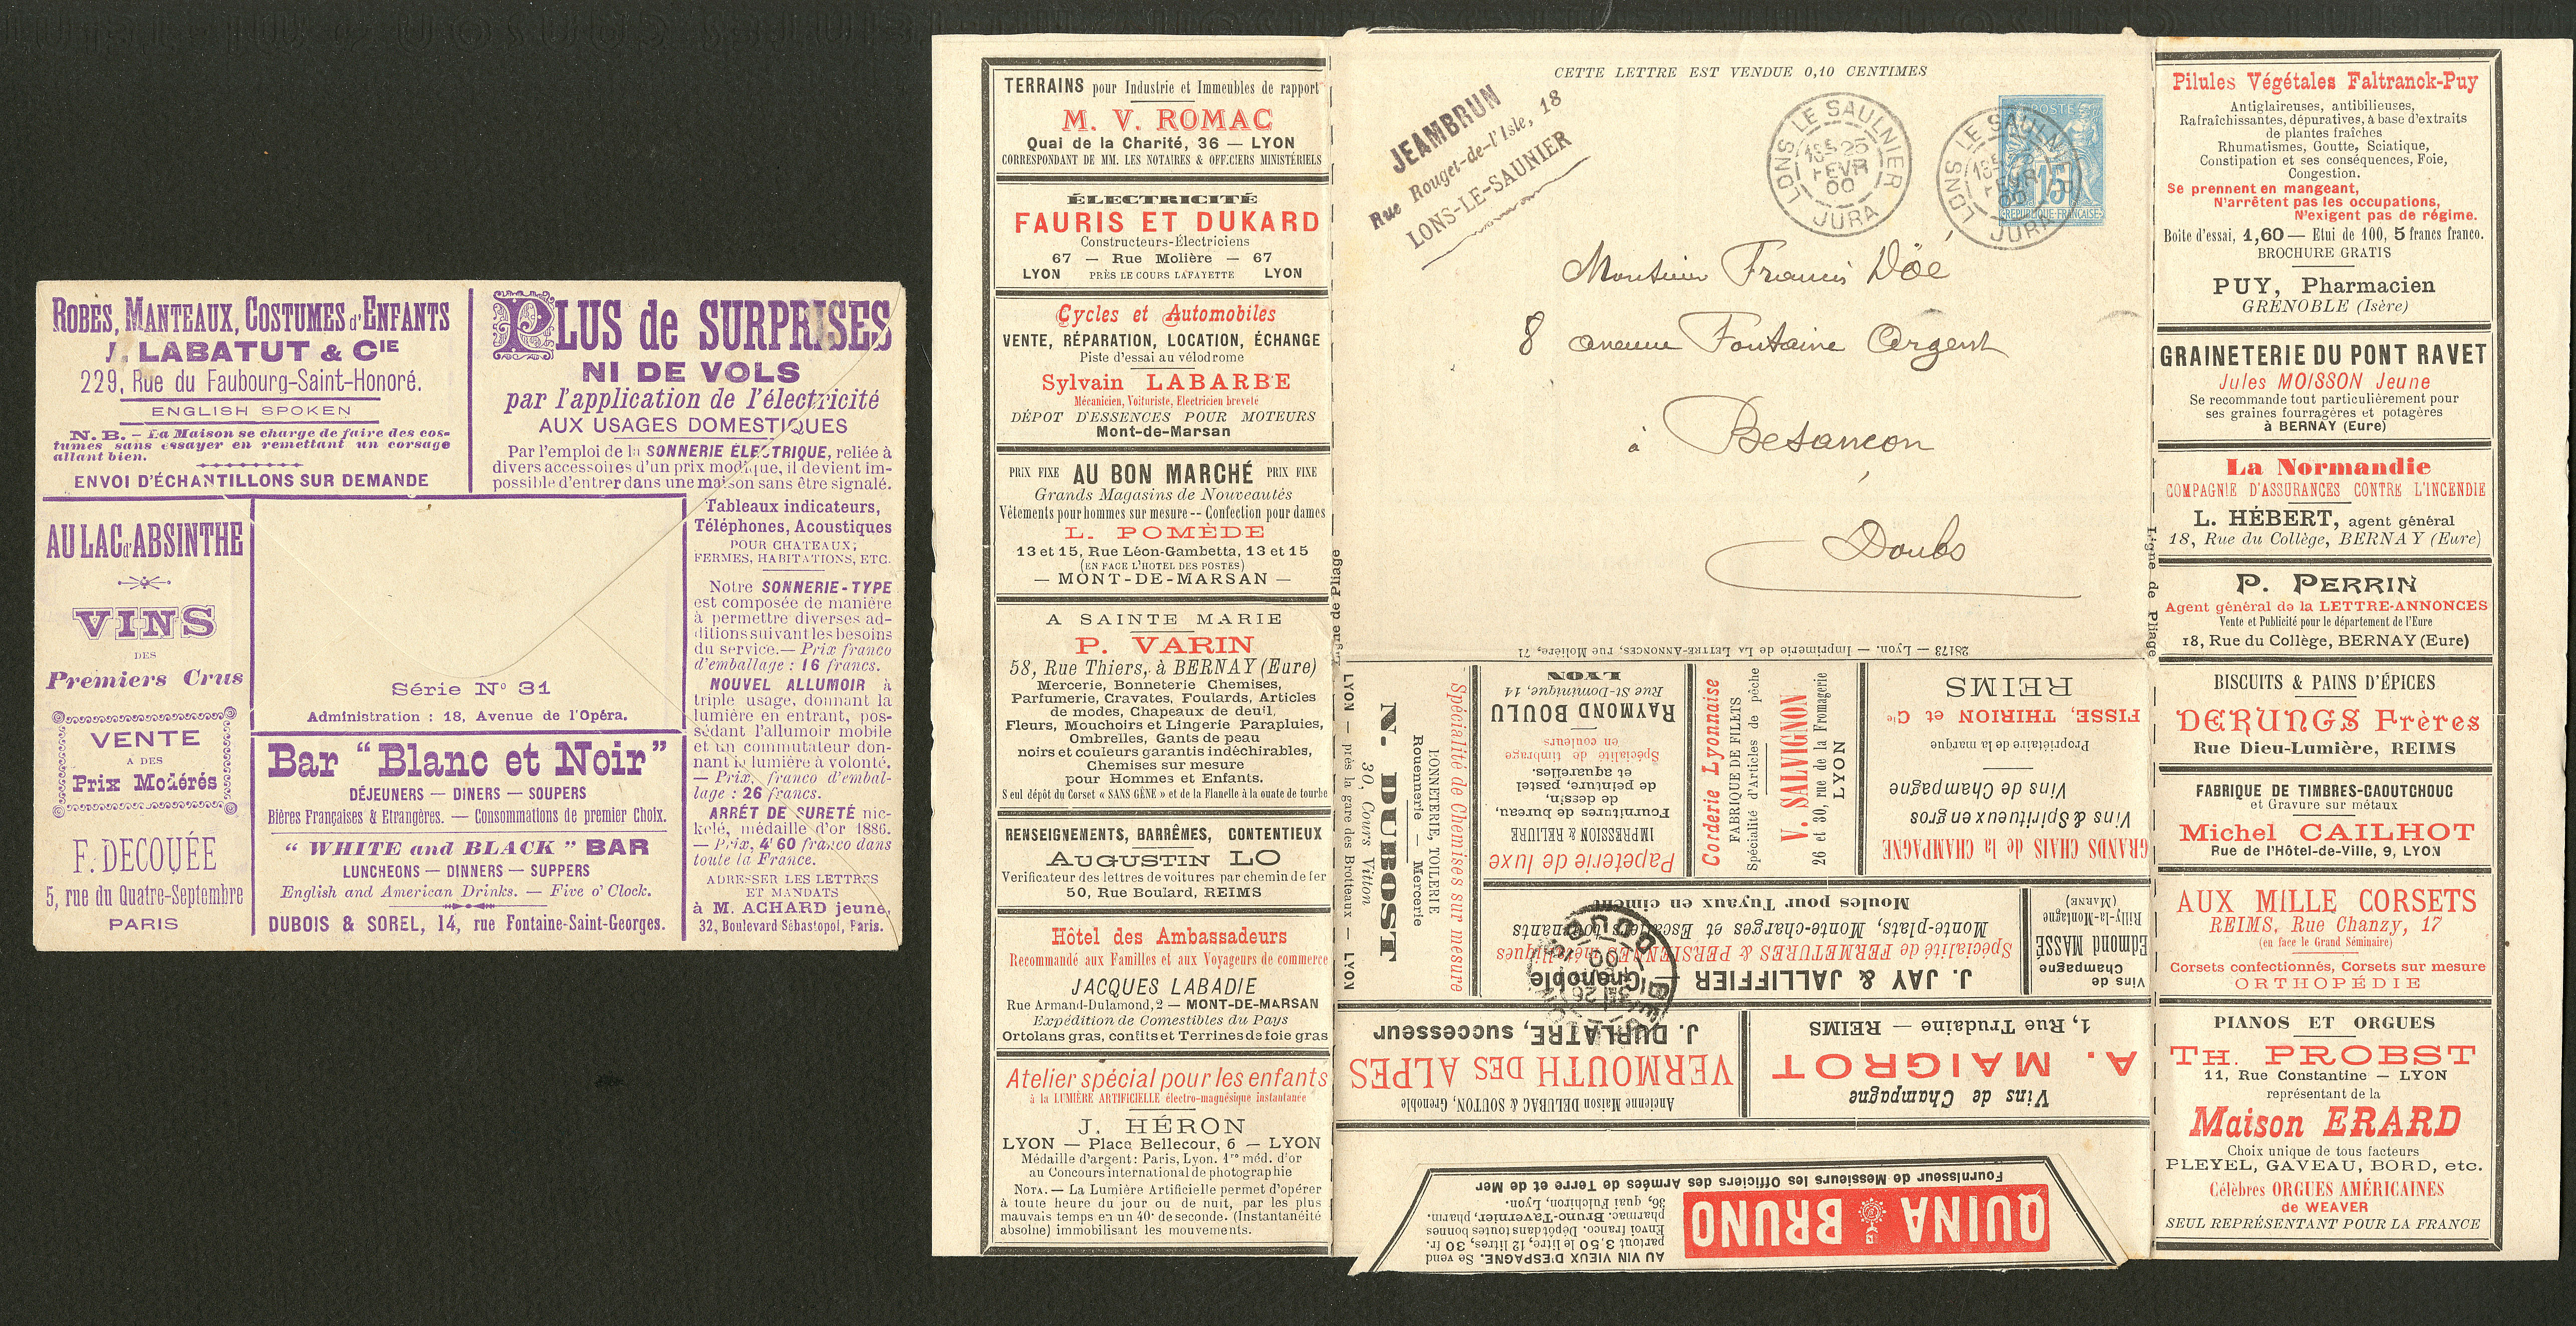 ROBES, MANTEAUX, COSTUMES d'ENFANTS
J. LABATUT & CIE
229, Rue du Faubourg-Saint-Honoré.
ENGLISH SPOKEN
N. B. — La Maison se charge de faire des cos-
tumes sans essayer en remettant un corsage
allant bien.
ENVOI D'ÉCHANTILLONS SUR DEMANDE
PLUS de SURPRISES
NI DE VOLS
par l'application de l'électricité
AUX USAGES DOMESTIQUES
Par l'emploi de la SONNERIE ÉLECTRIQUE, reliée à
divers accessoires d'un prix modique, il devient im-
possible d'entrer dans une maison sans être signalé.
Tableaux indicateurs,
Téléphones, Acoustiques
POUR CHATEAUX,
FERMES, HABITATIONS, ETC.
Notre SONNERIE-TYPE
est composée de manière
à permettre diverses ad-
ditions suivant les besoins
du service. — Prix franco
d'emballage : 16 francs.
NOUVEL ALLUMOIR à
triple usage, donnant la
lumière en entrant, pos-
sédant l'allumoir mobile
et un commutateur don-
nant la lumière à volonté.
— Prix, franco d'embal-
lage : 26 francs.
ARRÊT DE SURETÉ nic-
kelé, médaille d'or 1886.
— Prix, 4f 60 franco dans
toute la France.
ADRESSER LES LETTRES
ET MANDATS
à M. ACHARD jeune,
32, Boulevard Sébastopol, Paris.
AU LAC d'ABSINTHE
VINS
DES
Premiers Crus
VENTE
A DES
Prix Modérés
F. DECQUÉE
5, rue du Quatre-Septembre
PARIS
Série No 31
Administration : 18, Avenue de l'Opéra.
Bar "Blanc et Noir"
DÉJEUNERS — DINERS — SOUPERS
Bières Françaises & Etrangères. — Consommations de premier Choix.
"WHITE and BLACK" BAR
LUNCHEONS — DINNERS — SUPPERS
English and American Drinks. — Five o'Clock.
DUBOIS & SOREL, 14, rue Fontaine-Saint-Georges.
TERRAINS pour Industrie et Immeubles de rapport
M. V. ROMAC
Quai de la Charité, 36 — LYON
CORRESPONDANT DE MM. LES NOTAIRES & OFFICIERS MINISTÉRIELS
ÉLECTRICITÉ
FAURIS ET DUKARD
Constructeurs-Électriciens
67 — Rue Molière — 67
LYON PRÈS LE COURS LAFAYETTE LYON
Cycles et Automobiles
VENTE, RÉPARATION, LOCATION, ÉCHANGE
Piste d'essai au vélodrome
Sylvain LABARBE
Mécanicien, Voituriste, Electricien breveté
DÉPOT D'ESSENCES POUR MOTEURS
Mont-de-Marsan
PRIX FIXE AU BON MARCHÉ PRIX FIXE
Grands Magasins de Nouveautés
Vêtements pour hommes sur mesure -- Confection pour dames
L. POMÈDE
13 et 15, Rue Léon-Gambetta, 13 et 15
(EN FACE L'HOTEL DES POSTES)
— MONT-DE-MARSAN —
A SAINTE MARIE
P. VARIN
58, Rue Thiers, à BERNAY (Eure)
Mercerie, Bonneterie Chemises,
Parfumerie, Cravates, Foulards, Articles
de modes, Chapeaux de deuil
Fleurs, Mouchoirs et Lingerie Parapluies,
Ombrelles, Gants de peau
noirs et couleurs garantis indéchirables,
Chemises sur mesure
pour Hommes et Enfants.
Seul dépôt du Corset « SANS GÊNE » et de la Flanelle à la ouate de tourbe
RENSEIGNEMENTS, BARRÊMES, CONTENTIEUX
AUGUSTIN LO
Verificateur des lettres de voitures par chemin de fer
50, Rue Boulard, REIMS
Hôtel des Ambassadeurs
Recommandé aux Familles et aux Voyageurs de commerce
JACQUES LABADIE
Rue Armand-Dulamond, 2 — MONT-DE-MARSAN
Expédition de Comestibles du Pays
Ortolans gras, confits et Terrines de foie gras
Atelier spécial pour les enfants
à la LUMIÈRE ARTIFICIELLE électro-magnésique instantanée
J. HÉRON
LYON — Place Bellecour, 6 — LYON
Médaille d'argent: Paris, Lyon. 1re méd. d'or
au Concours international de photographie
NOTA. — La Lumière Artificielle permet d'opérer
à toute heure du jour ou de nuit, par les plus
mauvais temps en un 40e de seconde. (Instantanéité
absolue) immobilisant les mouvements.
Ligne de Pliage
CETTE LETTRE EST VENDUE 0,10 CENTIMES
JEAMBRUN
Rue Rouget-de-l'Isle, 18
LONS-LE-SAUNIER
LONS LE SAULNIER
25
FEVR
00
JURA
LONS LE SAULNIER
FEVR
00
JURA
POSTES
15
REPUBLIQUE FRANCAISE
Monsieur Francis Döé
8 avenue Fontaine Argent
à Besancon
Doubs
28173 — Lyon. — Imprimerie de LA LETTRE-ANNONCES, rue Molière, 71
Ligne de Pliage
QUINA BRUNO
AU VIN VIEUX D'ESPAGNE. Se vend
partout 3,50 le litre, 12 litres, 30 fr.
Envoi franco. Dépôt dans toutes bonnes
pharmac. Bruno-Tavernier, pharm.
36, quai Fulchiron, Lyon.
Fournisseur de Messieurs les Officiers des Armées de Terre et de Mer
Vins de Champagne
A. MAIGROT
1, Rue Trudaine — REIMS
Ancienne Maison DELUBAC & SOUTON, Grenoble
VERMOUTH DES ALPES
J. DURLATRE, successeur
Vins de
Champagne
Edmond MASSÉ
Rilly-la-Montagne
(MARNE)
J. JAY & JALLIFFIER — Grenoble
Spécialité de FERMETURES & PERSIENNES métalliques
Monte-plats, Monte-charges et Escaliers tournants
Moules pour Tuyaux en ciment
GRANDS CHAIS de la CHAMPAGNE
Vins & Spiritueux en gros
Vins de Champagne
Propriétaire de la marque
FISSE, THIRION et Cie
REIMS
Corderie Lyonnaise
FABRIQUE DE FILETS
Spécialité d'Articles de pêche
V. SALVIGNON
26 et 30, rue de la Fromagerie
LYON
Papeterie de luxe
IMPRESSION & RELIURE
Fournitures de bureau,
de dessin,
de peinture, pastel
et aquarelles.
Spécialité de timbrage
en couleurs
RAYMOND BOULU
Rue St-Dominique, 14
LYON
Spécialité de Chemises sur mesure
BONNETERIE, TOILERIE
Rouennerie — Mercerie
N. DUBOST
30, Cours Vitton
LYON — près la gare des Brotteaux — LYON
Pilules Végétales Faltranck-Puy
Antiglaireuses, antibilieuses,
Rafraîchissantes, dépuratives, à base d'extraits
de plantes fraîches
Rhumatismes, Goutte, Sciatique,
Constipation et ses conséquences, Foie,
Congestion.
Se prennent en mangeant,
N'arrêtent pas les occupations,
N'exigent pas de régime.
Boîte d'essai, 1,60 — Etui de 100, 5 francs franco.
BROCHURE GRATIS
PUY, Pharmacien
GRENOBLE (Isère)
GRAINETERIE DU PONT RAVET
Jules MOISSON Jeune
Se recommande tout particulièrement pour
ses graines fourragères et potagères
à BERNAY (Eure)
La Normandie
COMPAGNIE D'ASSURANCES CONTRE L'INCENDIE
L. HÉBERT, agent général
18, Rue du Collège, BERNAY (Eure)
P. PERRIN
Agent général de la LETTRE-ANNONCES
Vente et Publicité pour le département de l'Eure
18, Rue du Collège, BERNAY (Eure)
BISCUITS & PAINS D'ÉPICES
DERUNGS Frères
Rue Dieu-Lumière, REIMS
FABRIQUE DE TIMBRES-CAOUTCHOUC
et Gravure sur métaux
Michel CAILHOT
Rue de l'Hôtel-de-Ville, 9, LYON
AUX MILLE CORSETS
REIMS, Rue Chanzy, 17
(en face le Grand Séminaire)
Corsets confectionnés, Corsets sur mesure
ORTHOPÉDIE
PIANOS ET ORGUES
TH. PROBST
11, Rue Constantine — LYON
représentant de la
Maison ERARD
Choix unique de tous facteurs
PLEYEL, GAVEAU, BORD, etc.
Célèbres ORGUES AMÉRICAINES
de WEAVER
SEUL REPRÉSENTANT POUR LA FRANCE